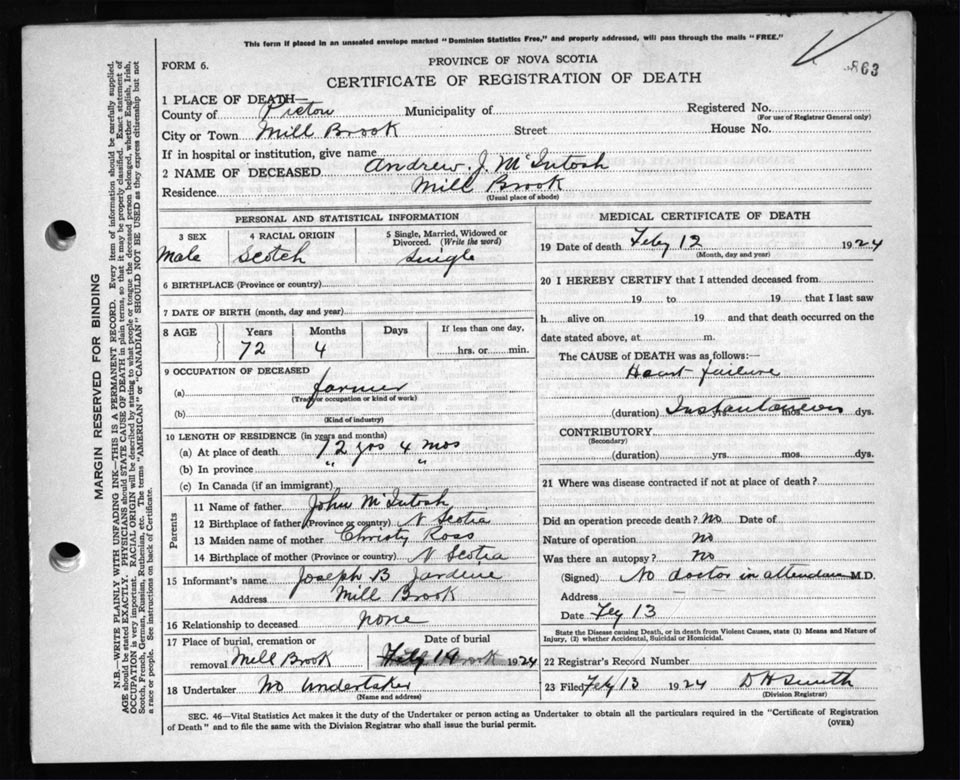 This form if placed in an unsealed envelope marked "Dominion Statistics Free," and properly addressed, will pass through the mails "FREE."
863
FORM 6.
PROVINCE OF NOVA SCOTIA
CERTIFICATE OF REGISTRATION OF DEATH
MARGIN RESERVED FOR BINDING
N.B.—WRITE PLAINLY WITH UNFADING INK—THIS IS A PERMANENT RECORD. Every item of information should be carefully supplied.
AGE should be stated EXACTLY. PHYSICIANS should STATE CAUSE OF DEATH in plain terms, so that it may be properly classified. Exact statement of
OCCUPATION is very important. RACIAL ORIGIN will be described by stating to what people or tongue the deceased person belonged, whether English, Irish,
Scotch, French, German, Russian, Ruthenian, etc. The terms "AMERICAN" or "CANADIAN" SHOULD NOT BE USED as they express citizenship but not
a race or people. See instructions on back of Certificate.
1 PLACE OF DEATH—
County of Pictou Municipality of Registered No.
(For use of Registrar General only)
City or Town Mill Brook Street House No.
If in hospital or institution, give name
2 NAME OF DECEASED Andrew J. McIntosh
Residence Mill Brook
(Usual place of abode)
PERSONAL AND STATISTICAL INFORMATION
3 SEX 4 RACIAL ORIGIN 5 Single, Married, Widowed or Divorced. (Write the word)
Male Scotch Single
6 BIRTHPLACE (Province or country)
7 DATE OF BIRTH (month, day and year)
8 AGE Years Months Days If less than one day,
72 4 hrs. or min.
9 OCCUPATION OF DECEASED
(a) farmer
(Trade or occupation or kind of work)
(b)
(Kind of industry)
10 LENGTH OF RESIDENCE (in years and months)
(a) At place of death 72 yrs 4 mos
(b) In province " "
(c) In Canada (if an immigrant)
Parents
11 Name of father John McIntosh
12 Birthplace of father (Province or country) N Scotia
13 Maiden name of mother Christy Ross
14 Birthplace of mother (Province or country) N Scotia
15 Informant's name Joseph B Jardine
Address Mill Brook
16 Relationship to deceased none
17 Place of burial, cremation or removal Mill Brook
Date of burial
1924
18 Undertaker No Undertaker
(Name and address)
MEDICAL CERTIFICATE OF DEATH
19 Date of death Feby 12 1924
(Month, day and year)
20 I HEREBY CERTIFY that I attended deceased from
19 to 19 that I last saw
h alive on 19 and that death occurred on
date stated above, at m.
The CAUSE of DEATH was as follows:—
Heart failure
(duration) Instantaneous yrs. mos. dys.
CONTRIBUTORY
(Secondary)
(duration) yrs. mos. dys.
21 Where was disease contracted if not at place of death?
Did an operation precede death? No Date of
Nature of operation No
Was there an autopsy? No
(Signed) No doctor in attendance M.D.
Address
Date Fey 13
State the Disease causing Death, or in death from Violent Causes, state (1) Means and Nature of
Injury, (2) whether Accidental, Suicidal or Homicidal.
22 Registrar's Record Number
23 Filed Fey 13 1924 D H Smith
(Division Registrar)
SEC. 46—Vital Statistics Act makes it the duty of the Undertaker or person acting as Undertaker to obtain all the particulars required in the "Certificate of Registration
of Death" and to file the same with the Division Registrar who shall issue the burial permit.
(OVER)